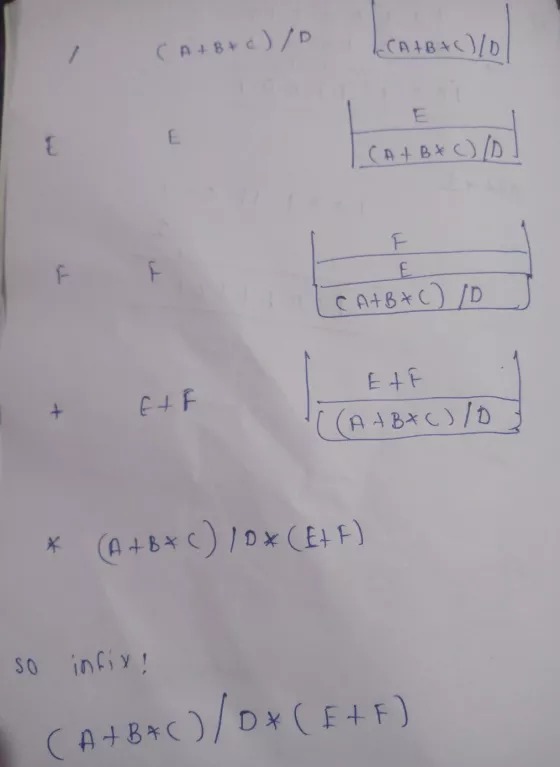 / (A+B*C)/D (A+B*C)/D
E
E E (A+B*C)/D
F
E
F F (A+B*C)/D
E+F
+ E+F ((A+B*C)/D
* (A+B*C)/D*(E+F)
so infix!
(A+B*C)/D*(E+F)